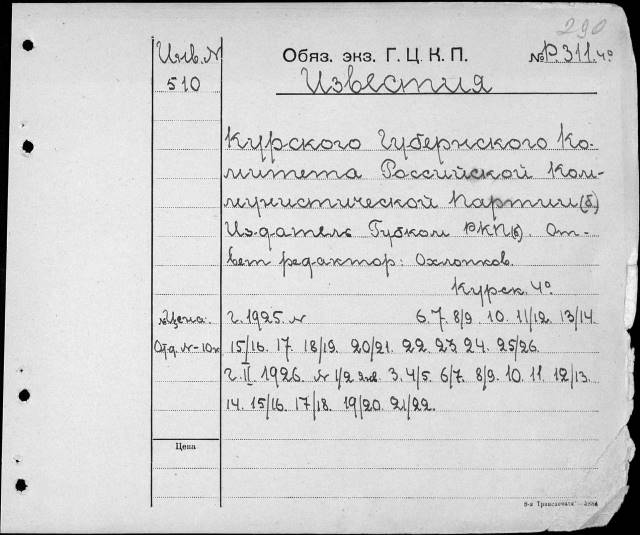 290
Инв. N
Обяз. экз. Г. Ц. К. П.
№ Р.311. 4°
510
Известия
Курского Губернского Ко-
митета Российской Ком-
мунистической Партии (б.)
Издатель Губком РКП(б). От-
вет редактор: Охлопков.
Курск. 4°
Цена.
Отд. N - 10к
г. I 1925. N 6. 7. 8/9. 10. 11/12. 13/14.
15/16. 17. 18/19. 20/21. 22. 23. 24. 25/26.
г. II 1926. N 1/2 янв. 3. 4/5. 6/7. 8/9. 10. 11. 12/13.
14. 15/16. 17/18. 19/20. 21/22.
Цена
8-я Транспечати